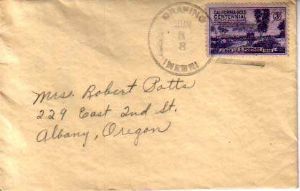 JUN
8
NEBR
CALIFORNIA GOLD
CENTENNIAL
3¢
Mrs. Robert Potts
229 East 2nd St.
Albany, Oregon